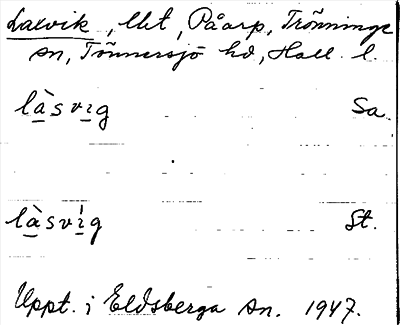 Laxvik, lht, Påarp, Trönninge
sn, Tönnersjö hd, Hall. l.
là̠svı̠g Sa.
là̠svı̠̀g St.
Uppt. i Eldsberga sn. 1947.